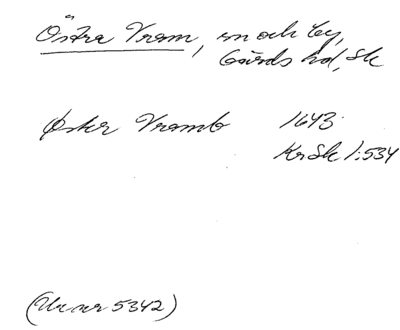 Östra Vram, sn och by,
Gärds hd, Sk
Øster Vramb 1643
KrSk 1:534
(Ur nr 5342)